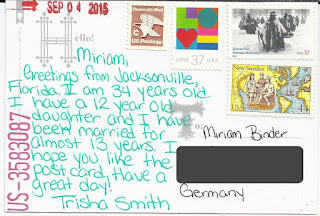 SEP 04 2015
Hello!
Miriam,
Greetings from Jacksonville,
Florida. I am 34 years old.
I have a 12 year old
daughter and I have
been married for
almost 13 years. I
hope you like the
postcard, Have a
great day!
Trisha Smith
US-3583087
U.S. Postage
LOVE 37 USA
37
New Sweden
USA
to:
Miriam Binder
Germany